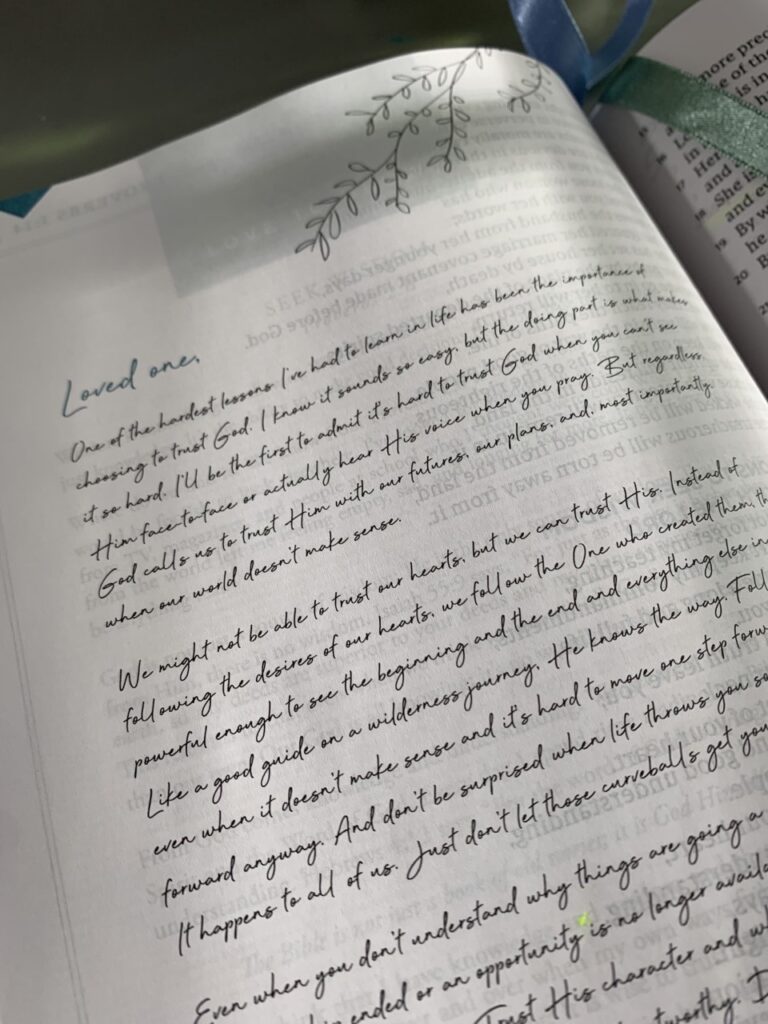 Loved one,
One of the hardest lessons I've had to learn in life has been the importance of
choosing to trust God. I know it sounds so easy, but the doing part is what makes
it so hard. I'll be the first to admit it's hard to trust God when you can't see
Him face-to-face or actually hear His voice when you pray. But regardless,
God calls us to trust Him with our futures, our plans, and, most importantly,
when our world doesn't make sense.
We might not be able to trust our hearts, but we can trust His. Instead of
following the desires of our hearts, we follow the One who created them, th
powerful enough to see the beginning and the end and everything else in
Like a good guide on a wilderness journey, He knows the way. Foll
even when it doesn't make sense and it's hard to move one step forw
forward anyway. And don't be surprised when life throws you so
It happens to all of us. Just don't let those curveballs get you
Even when you don't understand why things are going a
ended or an opportunity is no longer availa
Trust His character and wh
tworthy. I
more prec
e of the
is in
in
Her
and
She is
and ev
By w
he
20 B